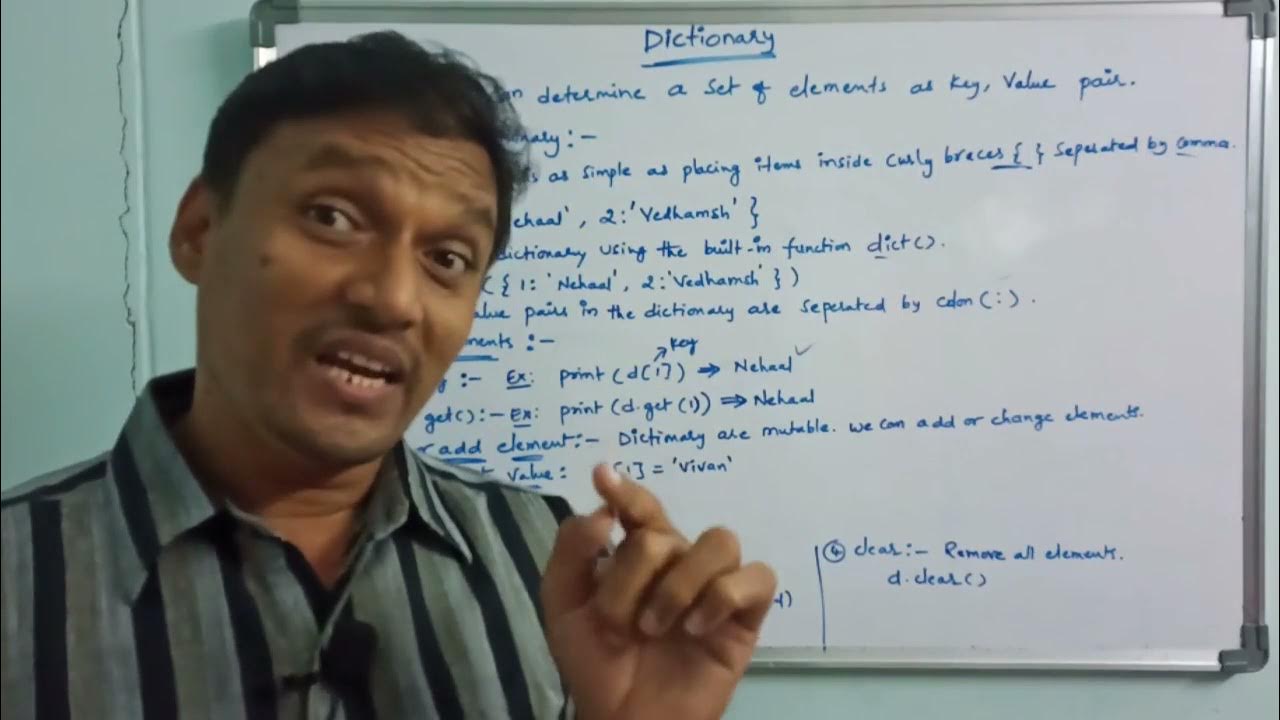 Dictionary
determine a set of elements as key, value pair.
:-
as simple as placing items inside curly braces { } seperated by comma.
, 2:'Vedhamsh' }
dictionary using the built-in function dict().
( { 1: 'Nehaal', 2:'Vedhamsh' } )
pairs in the dictionary are seperated by colon (:) .
:-
key
:- Ex: print (d[1]) ⇒ Nehaal ✓
get() :- Ex: print (d.get (1)) ⇒ Nehaal
add element:- Dictionary are mutable. we can add or change elements.
Value: [1] = 'Vivan'
④ clear :- Remove all elements.
d.clear()